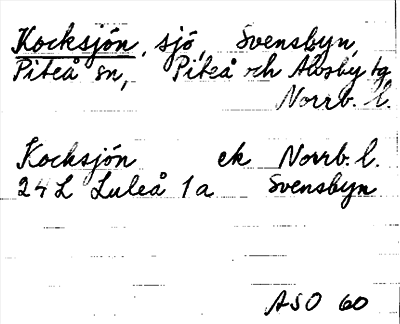 Kocksjön, sjö, Svensbyn,
Piteå sn, Piteå och Älvsby tg
Norrb. l.
Kocksjön ek Norrb. l.
24L Luleå 1a Svensbyn
ASO 60